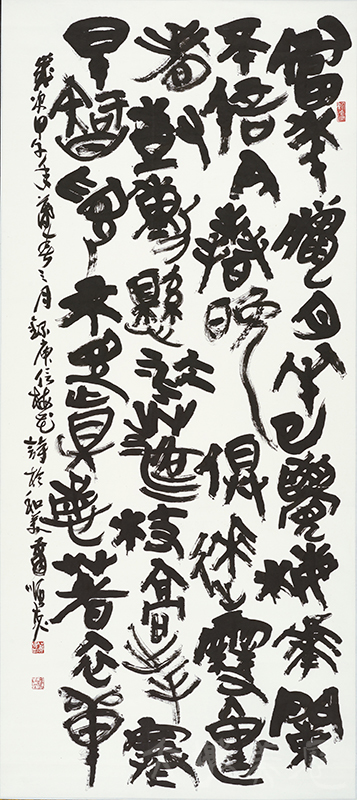 當年臘月半已覺梅花闌
不信今春晚俱來雪裏
看樹動懸冰落枝高出手寒
早知覓不見真悔著衣單
歲次甲子年春之月錄庾信梅花詩於和美蕭順